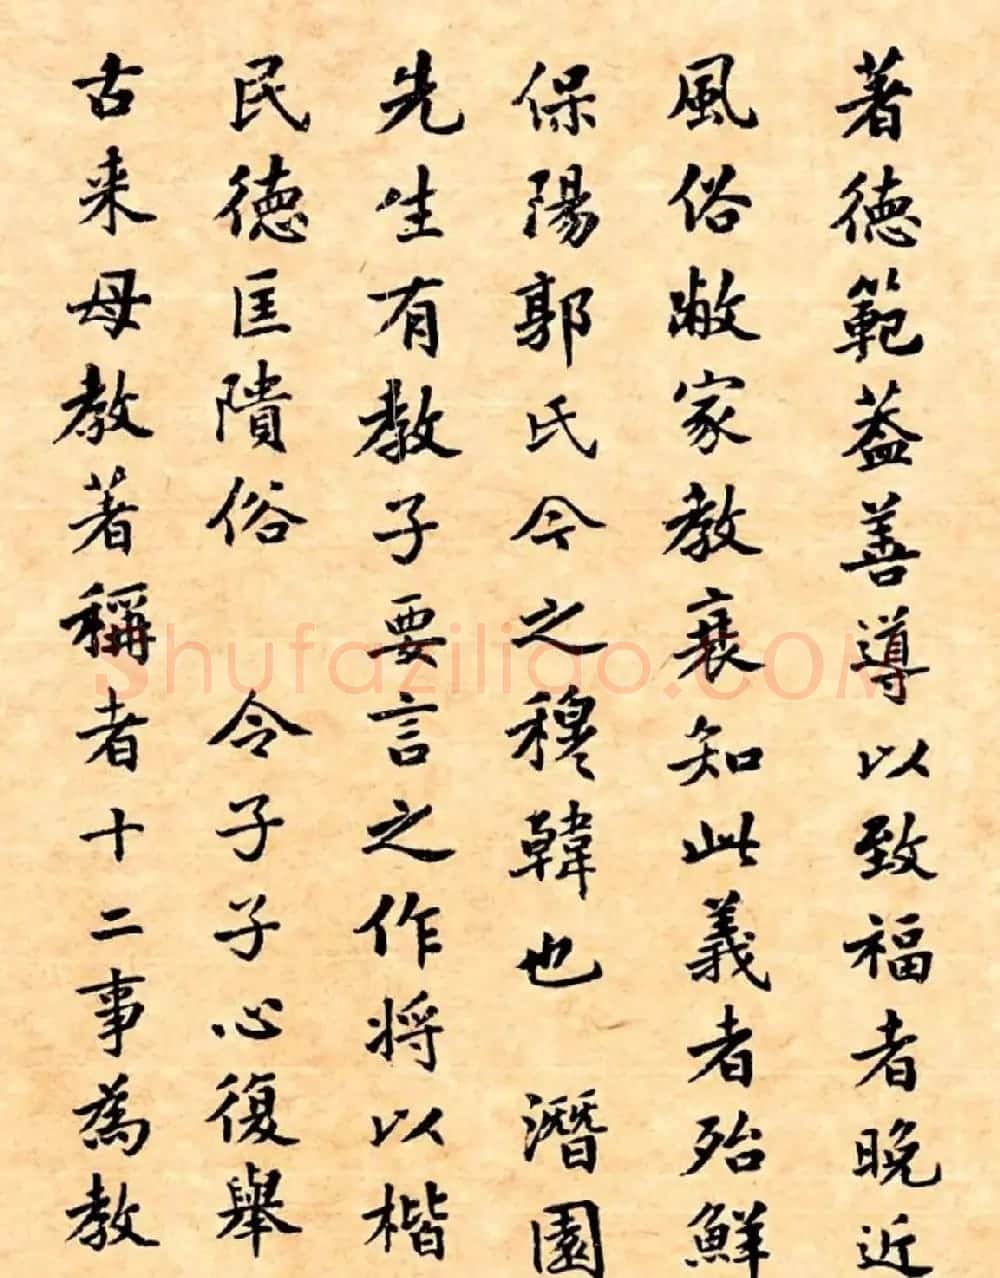 著德範蓋善導以致福者晚近
風俗敝家教衰知此義者殆鮮
保陽郭氏今之穆韓也 潛園
先生有教子要言之作將以楷
民德匡隤俗 令子子心復舉
古来母教著稱者十二事為教
shufaziliao.COM